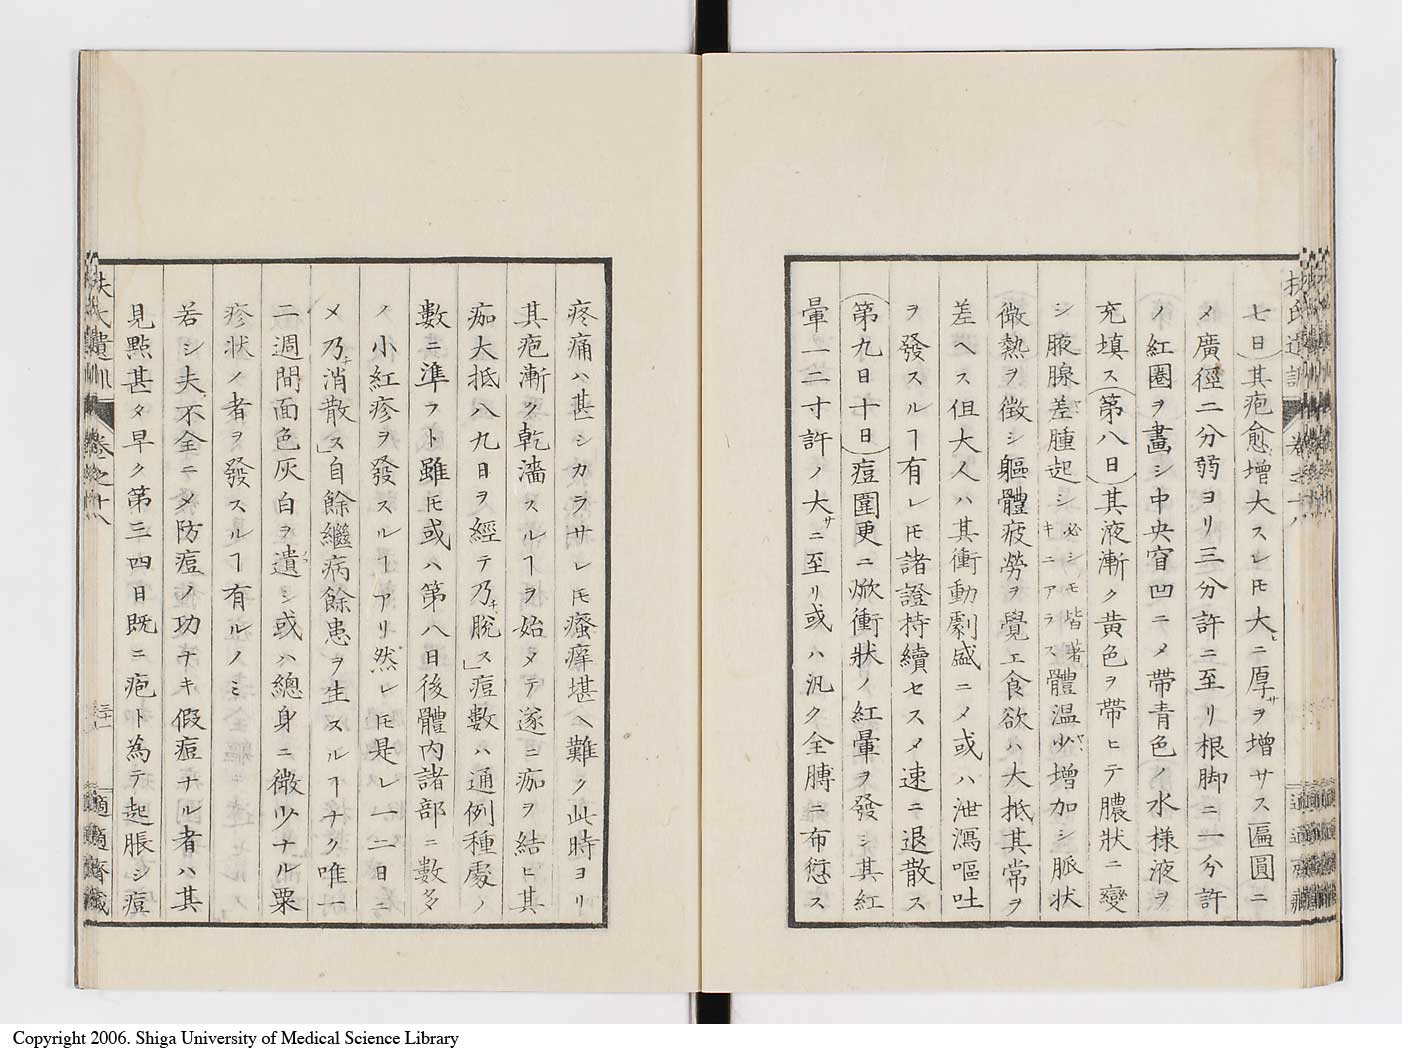 七日)其疱愈增大スレ𪜈大ヒニ厚サヲ增サス匾圓ニ
メ廣徑二分弱ヨリ三分許ニ至リ根脚ニ一分許
ノ紅圈ヲ畫シ中央窅凹ニメ帶青色ノ水樣液ヲ
充填ス(第八日)其液漸ク黄色ヲ帶ヒテ膿狀ニ變
シ腋腺差腫起シ必シモ皆著キニアラス體温少增加シ脈狀
微熱ヲ徴シ軀體疲勞ヲ覺エ食欲ハ大抵其常ヲ
差ヘス但大人ハ其衝動劇盛ニメ或ハ泄瀉嘔吐
ヲ發スルヿ有レ𪜈諸證持續セスメ速ニ退散ス
(第九日十日)痘圍更ニ焮衝狀ノ紅暈ヲ發シ其紅
暈一二寸許ノ大サニ至リ或ハ汎ク全膊ニ布衍ス
疼痛ハ甚シカラサレ𪜈瘙痒堪ヘ難ク此時ヨリ
其疱漸ク乾濇スルヿヲ始メテ遂ニ痂ヲ結ヒ其
痂大抵八九日ヲ經テ乃チ脫ス」痘數ハ通例種處ノ
數ニ準フト雖𪜈或ハ第八日後體内諸部ニ數多
ノ小紅疹ヲ發スルヿアリ然レ𪜈是レ一二日ニ
メ乃チ消散ス」自餘繼病餘患ヲ生スルヿナク唯一
二週間面色灰白ヲ遺シ或ハ總身ニ微少ナル粟
疹狀ノ者ヲ發スルヿ有ルノミ
若シ夫不全ニメ防痘ノ功ナキ假痘ナル者ハ其
見點甚タ早ク第三四日既ニ疱ト為テ起脹シ痘
扶氏遺訓 卷之十八
適適齋藏
Copyright 2006. Shiga University of Medical Science Library